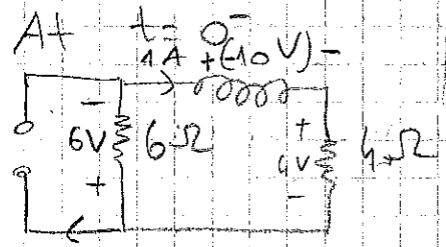 At t = 0⁻
1A + (-10V) -
-
6V 6Ω
+
+
4V 4Ω
-